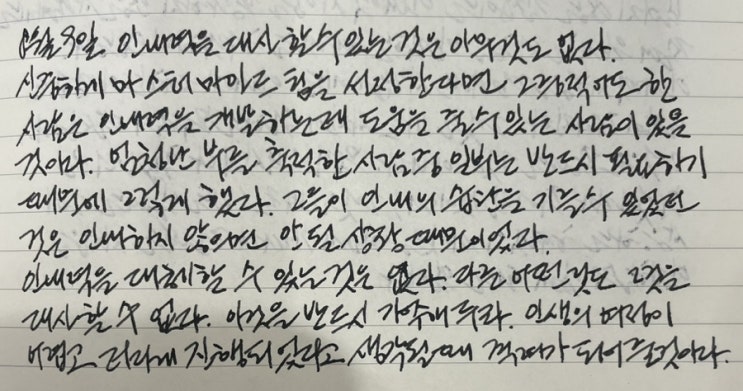 인내력을 대신 할 수 있는 것은 아무것도 없다.
신중하게 마스터 마인드 팀을 선정한다면 그중 적어도 한
사람은 인내력을 개발하는데 도움을 줄 수 있는 사람이 있을
것이다. 엄청난 부를 축적한 사람 중 일부는 반드시 필요하기
때문에 그렇게 했다. 그들이 인내의 습관을 기를 수 있었던
것은 인내하지 않으면 안 될 상황 때문이었다.
인내력을 대체할 수 있는 것은 없다. 다른 어떤 것도 그것을
대신 할 수 없다. 이것을 반드시 기억해 두라. 인생의 여정이
어렵고 더디게 진행되었다고 생각될 때 격려가 되어 줄 것이다.